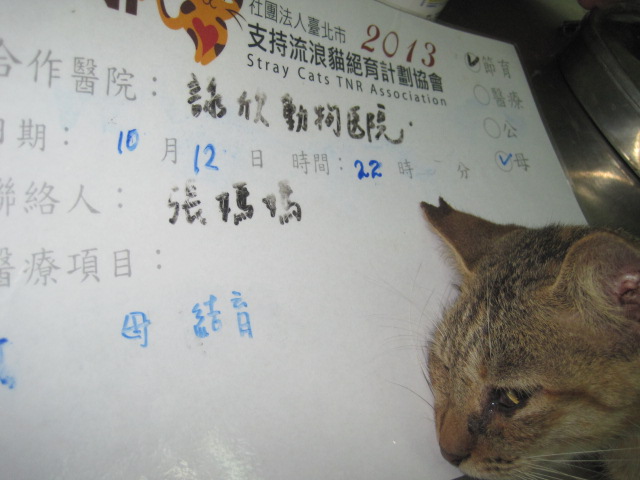 社團法人臺北市
支持流浪貓絕育計劃協會
Stray Cats TNR Association
2013
節育
醫療
公
母
合作醫院：詠欣動物医院
日期：10月12日 時間：22時 分
聯絡人：張媽媽
醫療項目：
母 結育